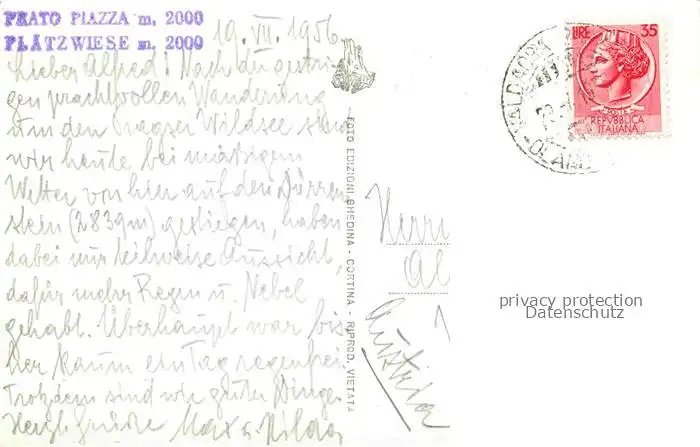 PRATO PIAZZA m. 2000
PLÄTZWIESE m. 2000
19. VII. 1956
Lieber Alfred! Nach der gestri-
gen prachtvollen Wanderung
um den Pragser Wildsee sind
wir heute bei mässigem
Wetter von hier auf den Dürren-
stein (2839m) gestiegen, haben
dabei nur teilweise Aussicht,
dafür mehr Regen u. Nebel
gehabt. Überhaupt war bis-
her kaum ein Tag regenfrei.
Trotzdem sind wir guter Dinge.
Herzl. Grüße Max u. Hilda
FOTO EDIZIONI GHEDINA - CORTINA - RIPROD. VIETATA
Herrn
Al
Austria
LIRE 35
POSTE
REPVBBLICA
ITALIANA
privacy protection
Datenschutz